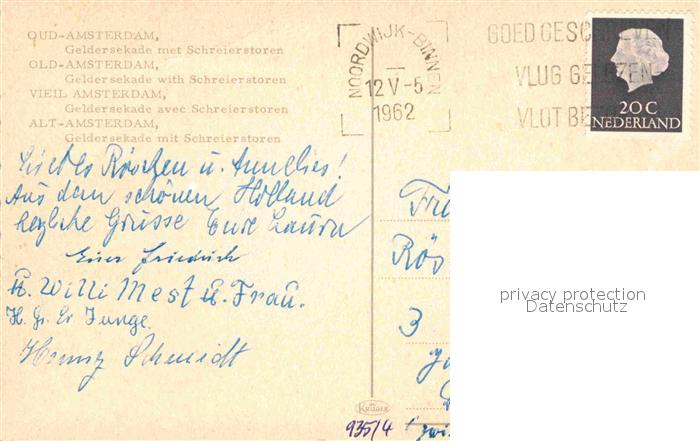 OUD-AMSTERDAM,
Geldersekade met Schreierstoren
OLD-AMSTERDAM,
Geldersekade with Schreierstoren
VIEIL AMSTERDAM,
Geldersekade avec Schreierstoren
ALT-AMSTERDAM,
Geldersekade mit Schreierstoren
NOORDWIJK-BINNEN
12 V -5
1962
GOED GESCHREVEN
VLUG GELEZEN
VLOT BE
20 C
NEDERLAND
Liebes Röschen u. Annelies!
Aus dem schönen Holland
herzliche Grüsse Eure Laura
Euer Friedrich
u. Willi Mest u. Frau.
H. Gr. Junge.
Schmidt
Fr
Rös
3
privacy protection
Datenschutz
KRÜGER
935/4